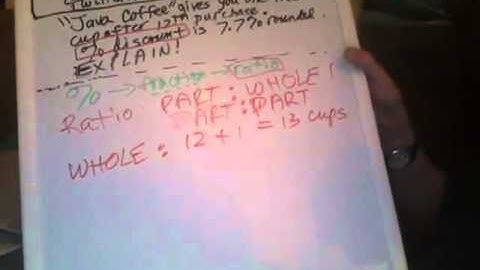 "Java Coffee" gives you one
cup after 12th purchase.
% discount is 7.7% rounded.
EXPLAIN!
% → fraction → ratio
Ratio PART : WHOLE
PART : PART
WHOLE : 12 + 1 = 13 cups